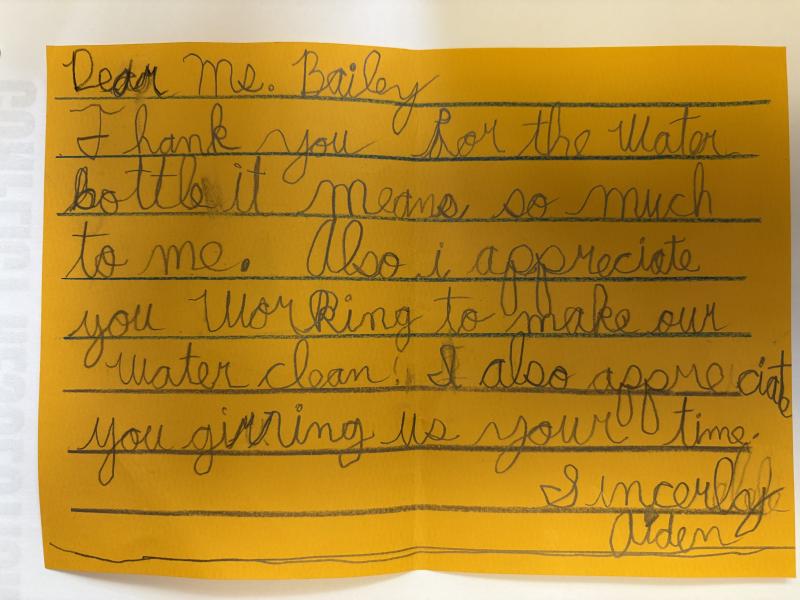 Dear Ms. Bailey
Thank you for the water
bottle it means so much
to me. Also i appreciate
you WorKing to make our
water clean! I also appreciate
you giving us your time.
Sincerley
Aiden